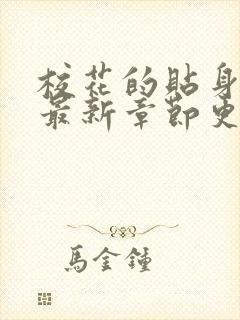 校花的貼身
最新章節更
馬金鍾